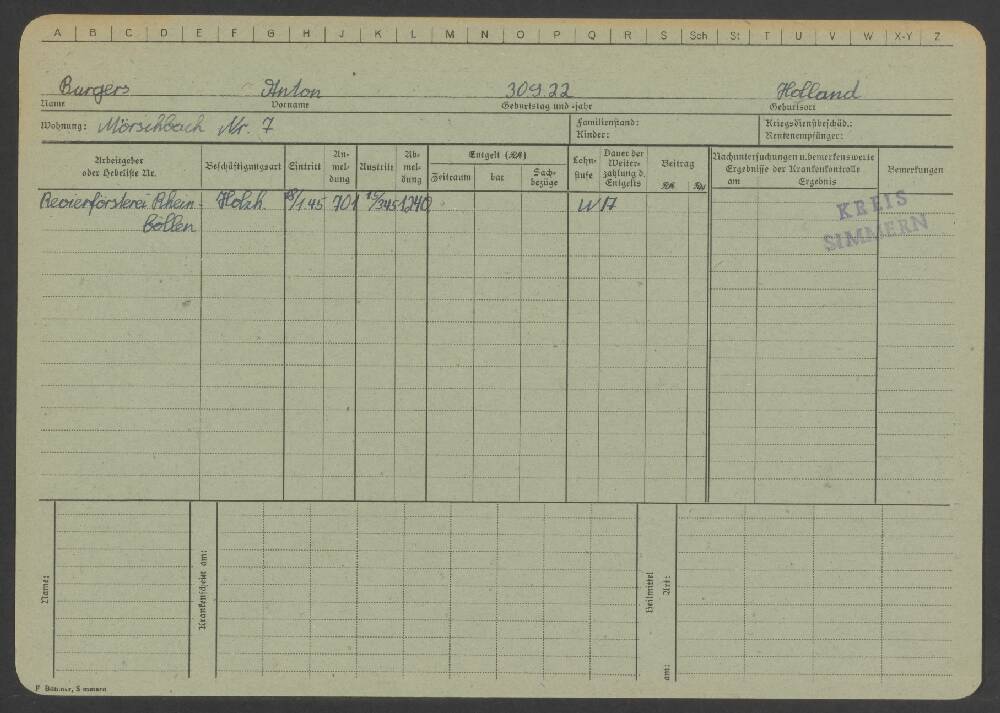 A B C D E F G H J K L M N O P Q R S Sch St T U V W X-Y Z
Burgers Anton 30.9.22 Holland
Name Vorname Geburtstag und -jahr Geburtsort
Wohnung: Mörschbach Nr. 7
Familienstand:
Kinder:
Kriegsdienstbeschäd.:
Rentenempfänger:
Arbeitgeber
oder Hebeliste Nr.
Beschäftigungsart
Eintritt
An-
mel-
dung
Austritt
Ab-
mel-
dung
Entgelt (RM)
Zeitraum bar Sach-
bezüge
Lohn-
stufe
Dauer der
Weiter-
zahlung d.
Entgelts
Beitrag
RM Rpf
Nachuntersuchungen u. bemerkenswerte
Ergebnisse der Krankenkontrolle
am Ergebnis
Bemerkungen
Revierförsterei Rhein- Holzh. 18/1.45 701 15/345 1240 W 17
böllen
KREIS
SIMMERN
Name:
Krankenscheine am:
Heilmittel
Art:
am:
F. Böhmer, Simmern